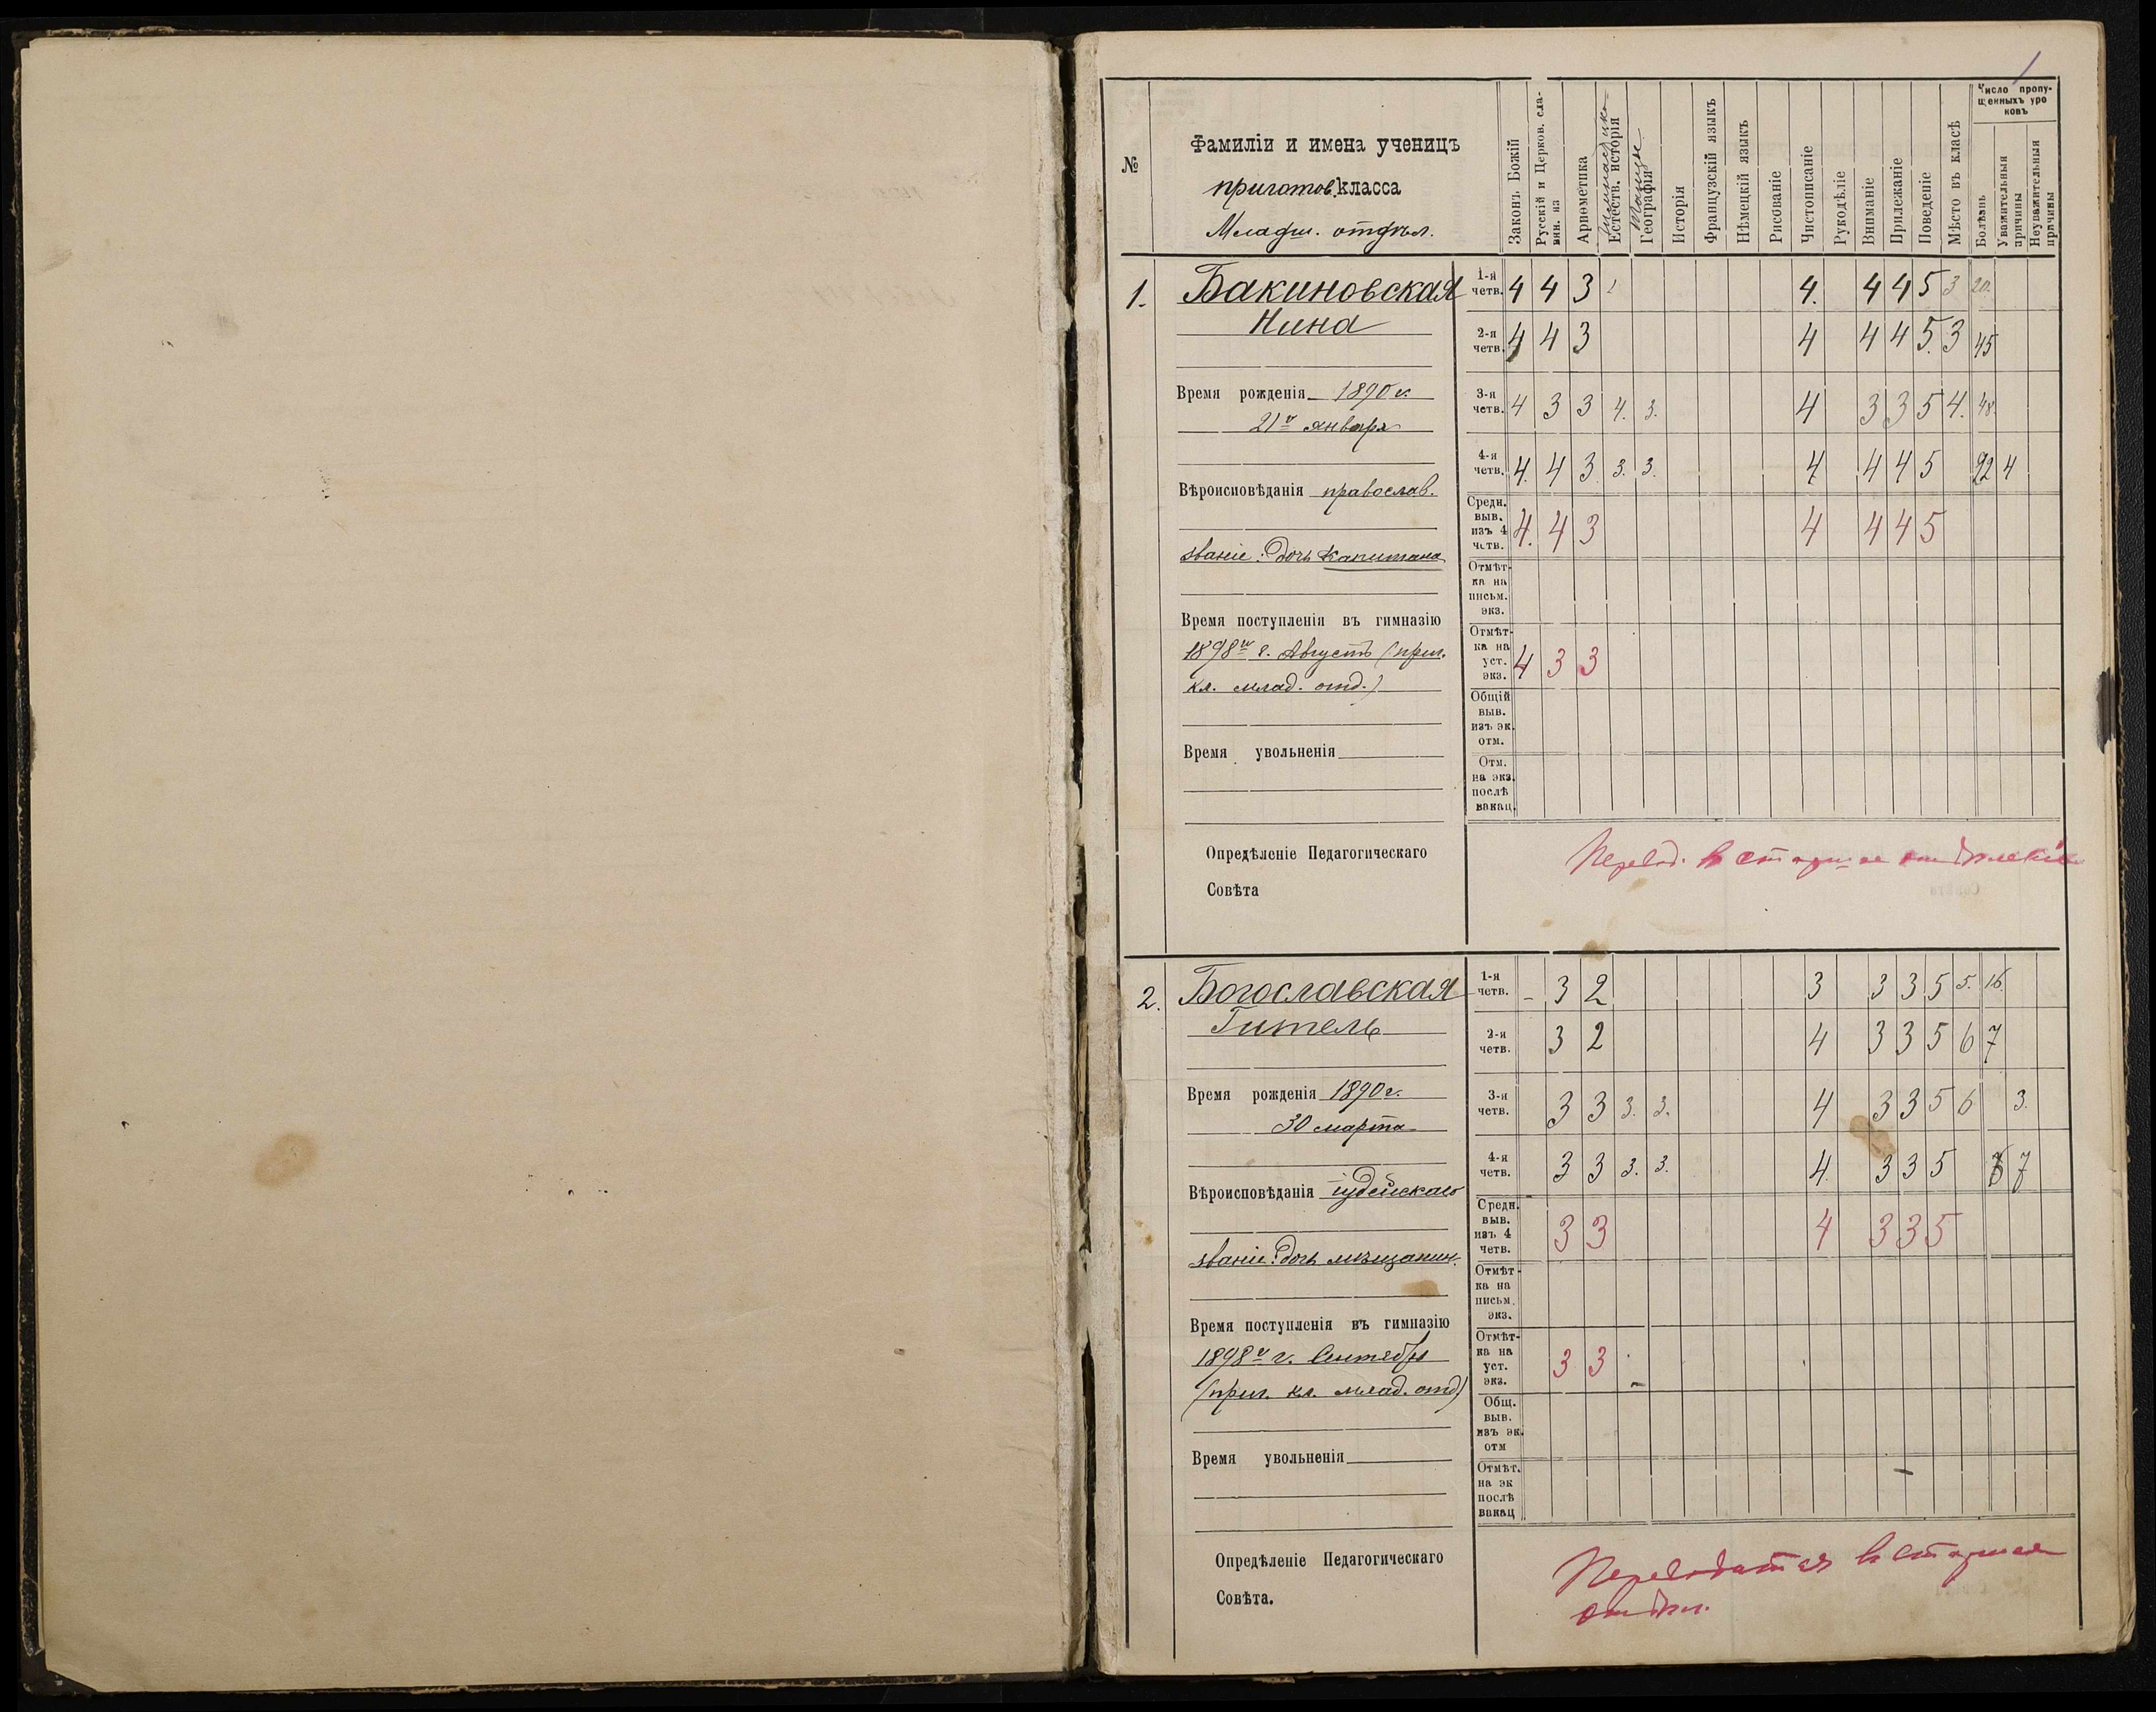 1
№
Фамиліи и имена ученицъ
приготов. класса
Младш. отдѣл.
Законъ Божій
Русскій и Церков. сла-
вян. яз
Ариѳметика
Гимнастика
Естеств. исторія
Танцы
Географія
Исторія
Французскій языкъ
Нѣмецкій языкъ
Рисованіе
Чистописаніе
Рукодѣліе
Вниманіе
Прилежаніе
Поведеніе
Мѣсто въ класѣ
Число пропу-
щенныхъ уро
ковъ
Болѣзнь
Уважительныя
причины
Неуважительныя
причины
1. Бакиновская
Нина
Время рожденія 1890 г.
21го января
Вѣроисповѣданія православ.
званіе: дочь капитана
Время поступленія въ гимназію
1898го г. Августъ (приг.
кл. млад. отд.)
Время увольненія
1-я
четв. 4 4 3 4. 4 4 5 3 20.
2-я
четв. 4 4 3 4 4 4 5. 3 45
3-я
четв. 4 3 3 4. 3. 4 3 3 5 4. 48.
4-я
четв. 4. 4 3 3. 3. 4 4 4 5 92 4
Средн.
выв.
изъ 4
четв. 4. 4 3 4 4 4 5
Отмѣт-
ка на
письм.
экз.
Отмѣт-
ка на
уст.
экз. 4 3 3
Общій
выв.
изъ эк.
отм.
Отм.
на экз.
послѣ
вакац.
Опредѣленіе Педагогическаго
Совѣта
Перевод. в старшее отдѣленіе
2. Богославская
Гитель
Время рожденія 1890 г.
30 марта
Вѣроисповѣданія іудейскаго
званіе: дочь мѣщанин.
Время поступленія въ гимназію
1898го г. Сентябрь
(приг. кл. млад. отд)
Время увольненія
1-я
четв. – 3 2 3 3 3 5 5. 16.
2-я
четв. 3 2 4 3 3 5 6 7
3-я
четв. 3 3 3. 3. 4 3 3 5 6 3.
4-я
четв. 3 3 3. 3. 4. 3 3 5 7
Средн.
выв.
изъ 4
четв. 3 3 4 3 3 5
Отмѣт-
ка на
письм.
экз.
Отмѣт-
ка на
уст.
экз. 3 3
Общ.
выв.
изъ эк.
отм
Отмѣт.
на эк
послѣ
вакац
Опредѣленіе Педагогическаго
Совѣта.
Переводится в старшее
отдѣл.